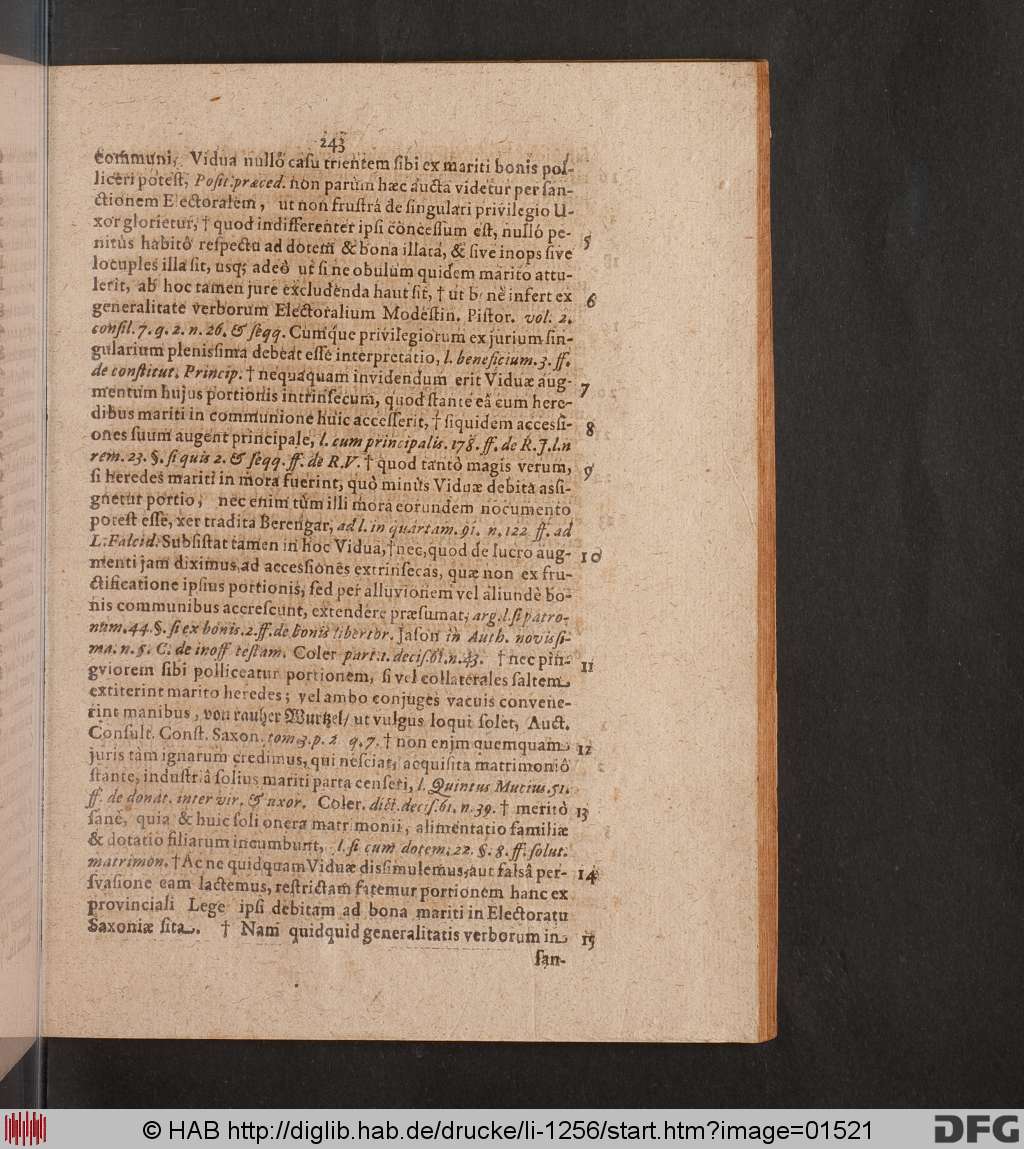 243
communi, Vidua nullô casu trientem sibi ex mariti bonis pol-
liceri potest, Posit. præced. non parùm hæc aucta videtur per san-
ctionem Electoralem, ut non frustrà de singulari privilegio U-
xor glorietur, † quod indifferenter ipsi concessum est, nullô pe- 5
nitùs habitô respectu ad dotem & bona illata, & sive inops sive
locuples illa sit, usq; adeò ut si ne obulum quidem marito attu-
lerit, ab hoc tamen jure excludenda haut sit, † ut b ne infert ex 6
generalitate verborum Electoralium Modestin. Pistor. vol. 2.
consil. 7. q. 2. n. 26. & seqq. Cumque privilegiorum ex jurium sin-
gularium plenissima debeat esse interpretatio, l. beneficium. 3. ff.
de constitut. Princip. † nequaquam invidendum erit Viduæ aug- 7
mentum hujus portionis intrinsecum, quod stante eâ cum here-
dibus mariti in communione huic accesserit, † siquidem accessi- 8
ones suum augent principale, l. cum principalis. 178. ff. de R. J. l. n
rem. 23. §. si quis 2. & seqq. ff. de R. V. † quod tantò magis verum, 9
si heredes mariti in mora fuerint, quò minùs Viduæ debita assi-
gnetur portio, nec enim tùm illi mora eorundem nocumento
potest esse, xer tradita Berengar, ad l. in quartam. 91. n. 122 ff. ad
L. Falcid. Subsistat tamen in hoc Vidua, † nec, quod de lucro aug- 10
menti jam diximus, ad accessiones extrinsecas, quæ non ex fru-
ctificatione ipsius portionis, sed per alluvionem vel aliundè bo-
nis communibus accrescunt, extendere præsumat, arg. l. si patro-
num. 44. §. si ex bonis. 2. ff. de bonis libertor. Jason in Auth. novissi-
ma. n. 5. C. de inoff testam. Coler part. 1. decis. 61. n. 43. † nec pin- 11
gviorem sibi polliceatur portionem, si vel collaterales saltem
extiterint marito heredes; vel ambo conjuges vacuis convene-
rint manibus, von rauher Wurtzel/ ut vulgus loqui solet, Auct.
Consult. Const. Saxon. tom. 3. p. 2 q. 7. † non enim quemquam 12
juris tàm ignarum credimus, qui nesciat, acquisita matrimoniô
stante, industriâ solius mariti parta censeri, l. Quintus Mutius. 51.
ff. de donat. inter vir. & uxor. Coler. dict. decis. 61. n. 39. † meritò 13
sanè, quia & huic soli onera matrimonii, alimentatio familiæ
& dotatio filiarum incumbunt, l. si cum dotem. 22. §. 8. ff. solut.
matrimon. † Ac ne quidquam Viduæ dissimulemus, aut falsâ per- 14
svasione eam lactemus, restrictam fatemur portionem hanc ex
provinciali Lege ipsi debitam ad bona mariti in Electoratu
Saxoniæ sita. † Nam quidquid generalitatis verborum in 15
san-
© HAB http://diglib.hab.de/drucke/li-1256/start.htm?image=01521
DFG